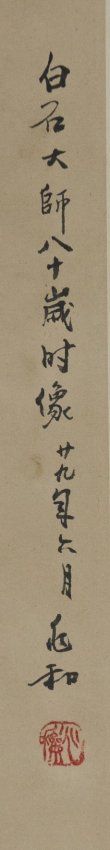 白石大師八十歲时像 廿九年六月 兆和